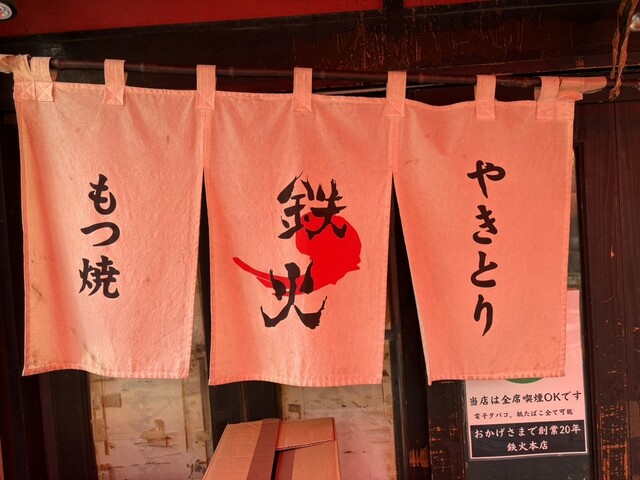 やきとり
鉄火
もつ焼
当店は全席喫煙OKです
電子タバコ、紙たばこ全て可能
おかげさまで創業20年
鉄火本店